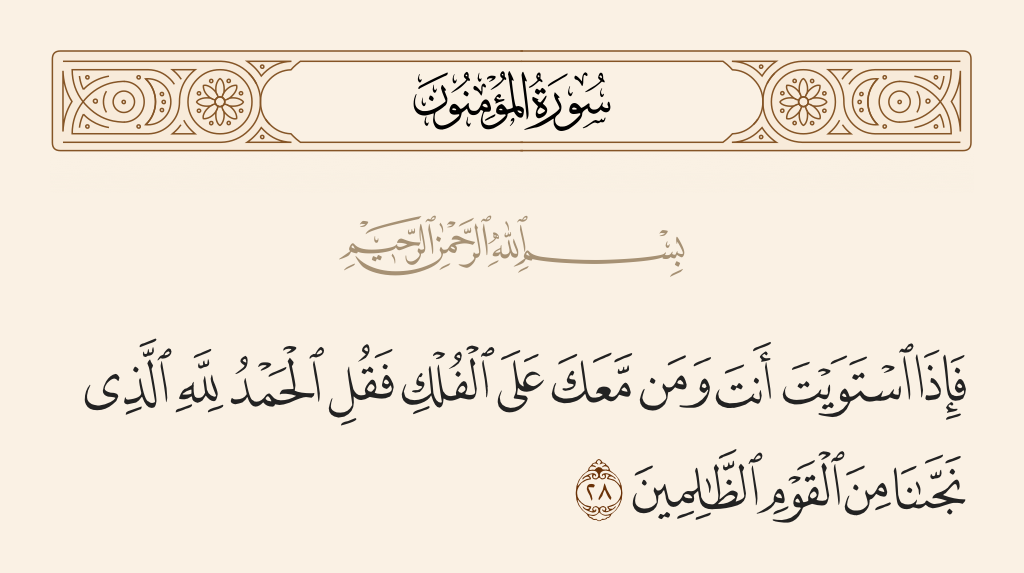 سُورَةُ المُؤْمِنُونَ
بِسْمِ ٱللَّهِ ٱلرَّحْمَٰنِ ٱلرَّحِيمِ
فَإِذَا ٱسْتَوَيْتَ أَنتَ وَمَن مَّعَكَ عَلَى ٱلْفُلْكِ فَقُلِ ٱلْحَمْدُ لِلَّهِ ٱلَّذِى
نَجَّىٰنَا مِنَ ٱلْقَوْمِ ٱلظَّٰلِمِينَ ٢٨